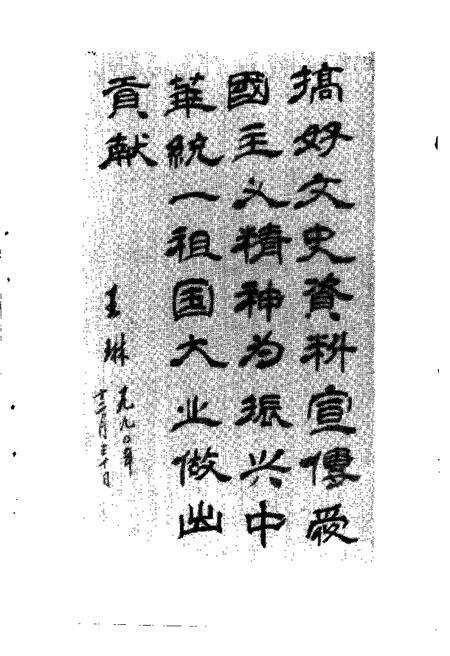 搞好文史資料宣傳愛
國主义精神为振兴中
華統一祖国大业做出
貢献
王琳
一九九〇年
十二月二十日